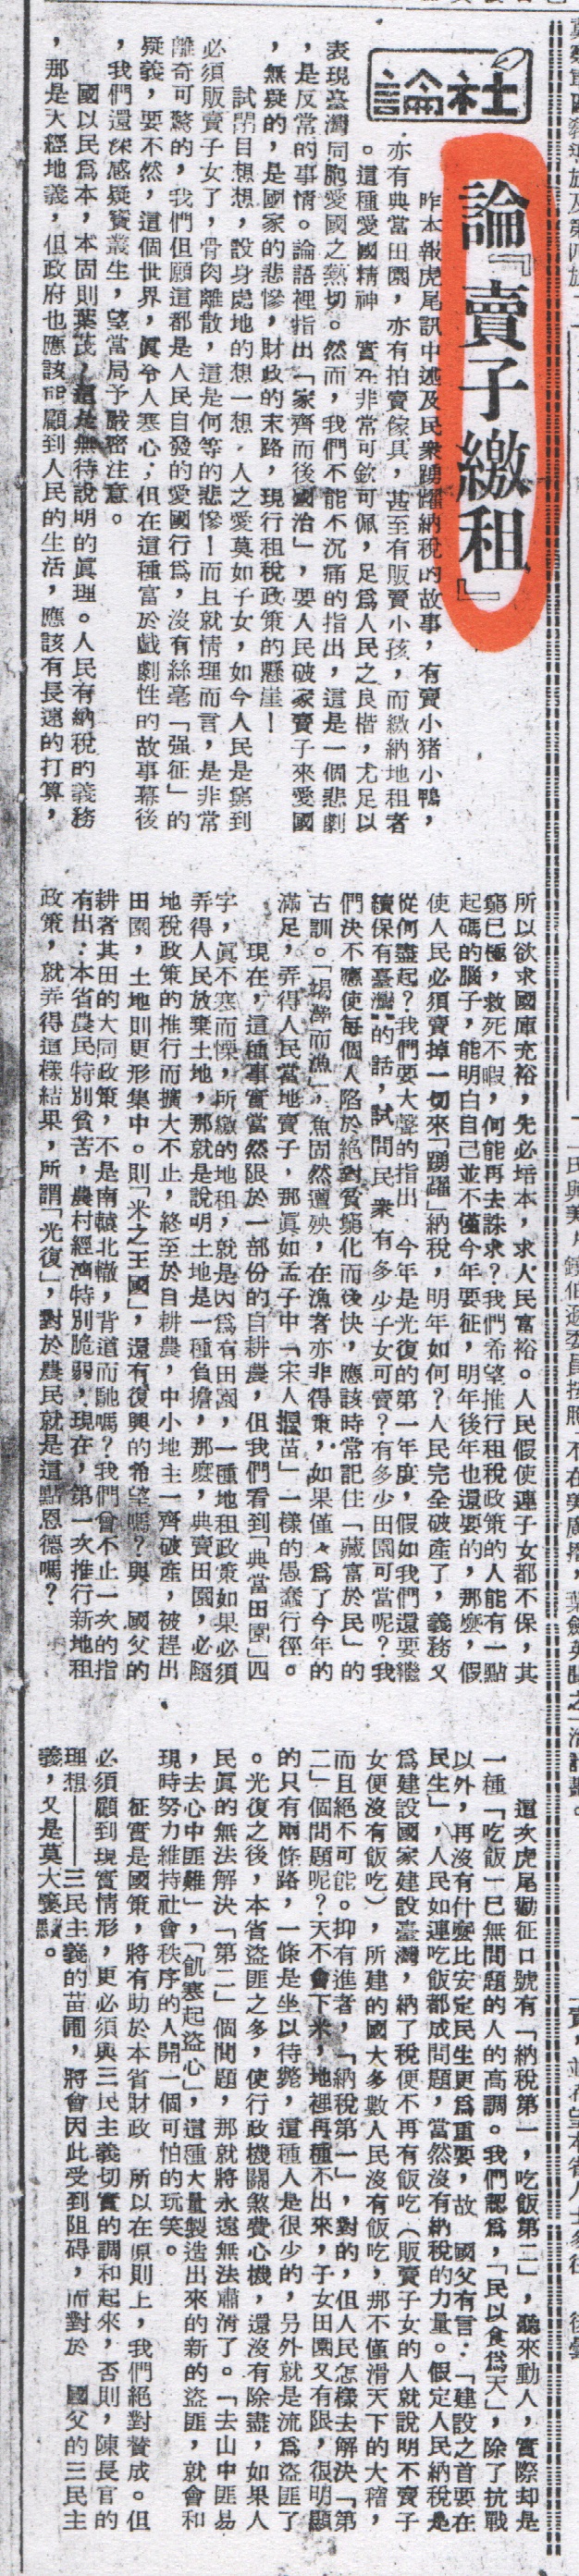 社論
論『賣子繳租』
昨本報虎尾訊中述及民衆踴躍納稅的故事，有賣小猪小鴨，
亦有典當田園，亦有拍賣傢具，甚至有販賣小孩，而繳納地租者
。這種愛國精神　實在非常可欽可佩，足爲人民之良楷，尤足以
表現臺灣同胞愛國之熱切。然而，我們不能不沉痛的指出，這是一個悲劇
，是反常的事情。論語裡指出「家齊而後國治」，要人民破家賣子來愛國
，無疑的，是國家的悲慘，財政的末路，現行租稅政策的懸崖！
試閉目想想，設身處地的想一想，人之愛莫如子女，如今人民是窮到
必須販賣子女了，骨肉離散，這是何等的悲慘！而且就情理而言，是非常
離奇可驚的，我們但願這都是人民自發的愛國行爲，沒有絲毫「强征」的
疑義，要不然，這個世界，眞令人寒心；但在這種富於戲劇性的故事幕後
，我們還深感疑竇叢生，望當局予嚴密注意。
國以民爲本，本固則葉茂，這是無待說明的眞理。人民有納稅的義務
，那是天經地義，但政府也應該能顧到人民的生活，應該有長遠的打算，
所以欲求國庫充裕，先必培本，求人民富裕。人民假使連子女都不保，其
窮已極，救死不暇，何能再去誅求？我們希望推行租稅政策的人能有一點
起碼的腦子，能明白自己並不僅今年要征，明年後年也還要的，那麼，假
使人民必須賣掉一切來「踴躍」納稅，明年如何？人民完全破產了，義務又
從何盡起？我們要大聲的指出　今年是光復的第一年度，假如我們還要繼
續保有臺灣的話，試問民衆　有多少子女可賣？有多少田園可當呢？我
們決不應使每個人陷於絕對貧窮化而後快，應該時常記住「藏富於民」的
古訓。「竭澤而漁」，魚固然遭殃，在漁者亦非得策，如果僅々爲了今年的
滿足，弄得人民當地賣子，那眞如孟子中「宋人揠苗」一樣的愚蠢行徑。
現在，這種事實當然限於一部份的自耕農，但我們看到「典當田園」四
字，眞不寒而慄，所繳的地租，就是因爲有田園，一種地租政策如果必須
弄得人民放棄土地，那就是說明土地是一種負擔，那麼，典賣田園，必隨
地稅政策的推行而擴大不止，終至於自耕農，中小地主一齊破產，被趕出
田園，土地則更形集中。則「米之王國」，還有復興的希望嗎？與　國父的
耕者其田的大同政策，不是南轅北轍，背道而馳嗎？我們曾不止一次的指
有出：本省農民特別貧苦，農村經濟特別脆弱，現在，第一次推行新地租
政策，就弄得這樣結果，所謂「光復」，對於農民就是這點恩德嗎？
這次虎尾勸征口號有「納稅第一，吃飯第二」，聽來動人，實際却是
一種「吃飯」已無問題的人的高調。我們認爲，「民以食爲天」，除了抗戰
以外，再沒有什麼比安定民生更爲重要，故　國父有言：「建設之首要在
民生」，人民如連吃飯都成問題，當然沒有納稅的力量。假定人民納稅是
爲建設國家建設臺灣，納了稅便不再有飯吃（販賣子女的人就說明不賣子
女便沒有飯吃），所建的國大多數人民沒有飯吃，那不僅滑天下的大稽，
而且絕不可能。抑有進者，「納稅第一」，對的，但人民怎樣去解決「第
二」個問題呢？天不會下米，地裡再種不出來，子女田園又有限，很明顯
的只有兩條路，一條是坐以待斃，這種人是很少的，另外就是流爲盜匪了
。光復之後，本省盜匪之多，使行政機關煞費心機，還沒有除盡，如果人
民眞的無法解決「第二」個問題，那就將永遠無法肅淸了。「去山中匪易
，去心中匪難」，「飢寒起盜心」，這種大量製造出來的新的盜匪，就會和
現時努力維持社會秩序的人開一個可怕的玩笑。
征實是國策，將有助於本省財政　所以在原則上，我們絕對贊成。但
必須顧到現實情形，更必須與三民主義切實的調和起來，否則，陳長官的
理想——三民主義的苗圃，將會因此受到阻碍，而對於　國父的三民主
義，又是莫大褻黷。